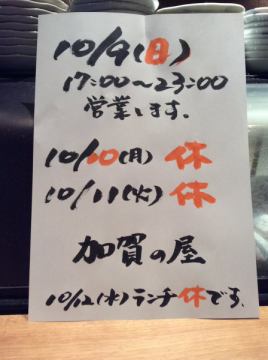 10/9(日)
17:00〜23:00
営業します。
10/10(月) 休
10/11(火) 休
加賀の屋
10/12(水)ランチ休です。